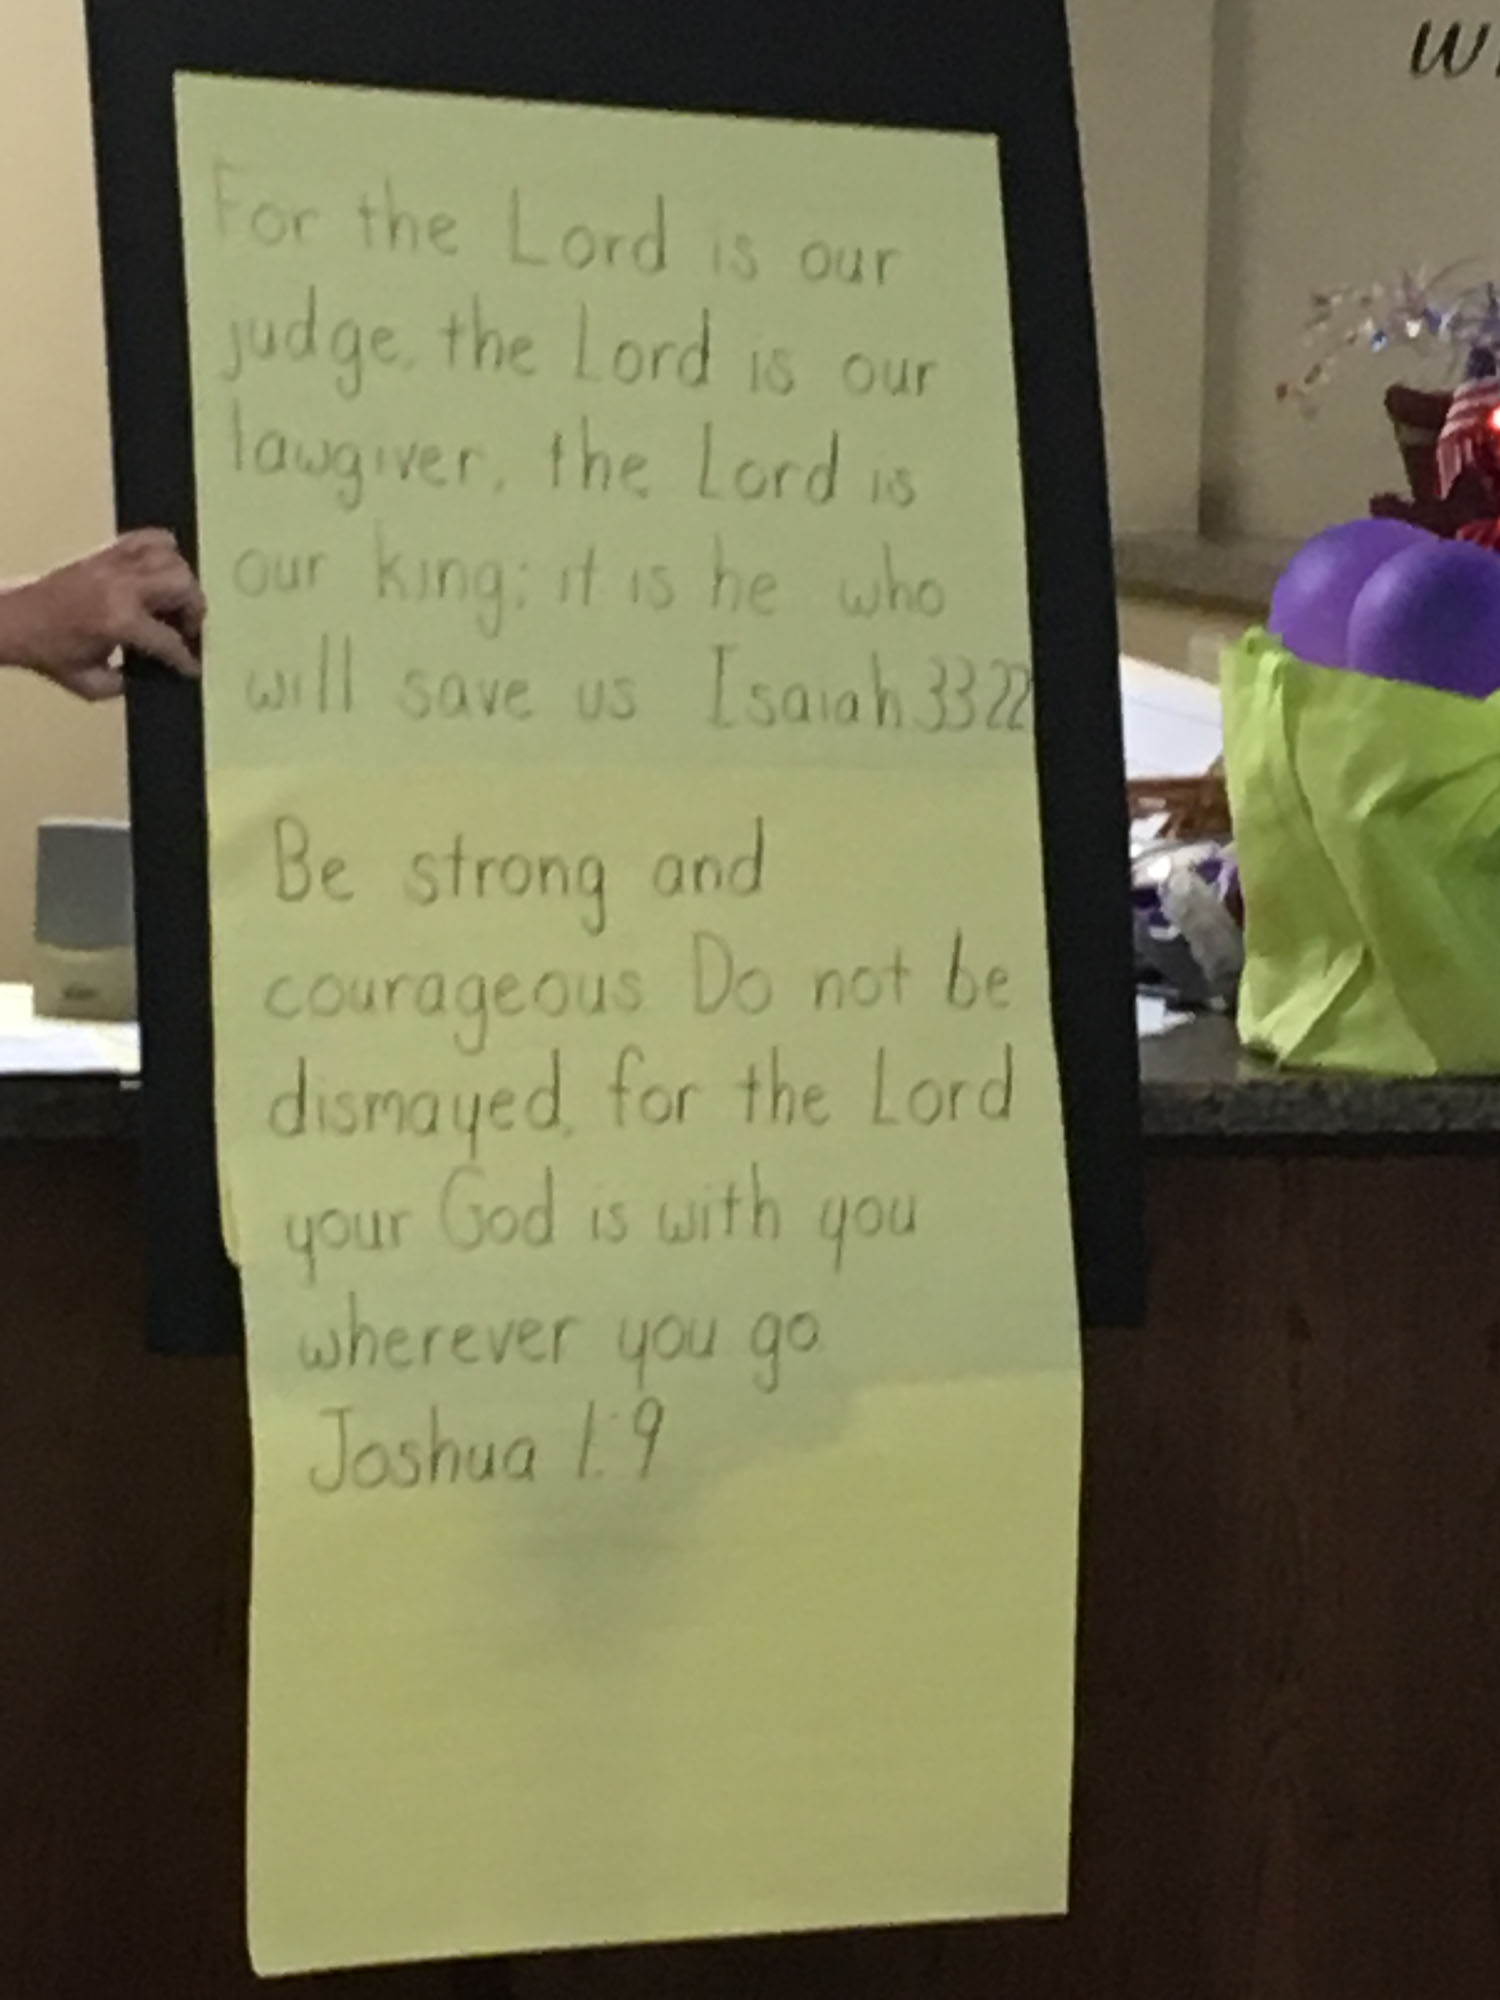 For the Lord is our
judge, the Lord is our
lawgiver, the Lord is
our king; it is he who
will save us Isaiah 33 22
Be strong and
courageous Do not be
dismayed, for the Lord
your God is with you
wherever you go
Joshua 1:9